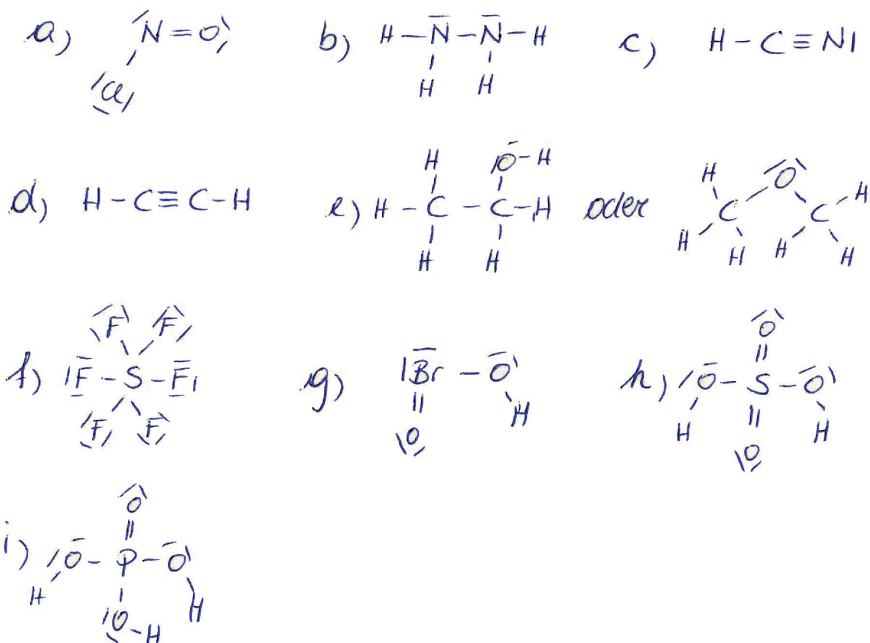 a) N=O Cl
b) H-N-N-H H H
c) H-C≡N|
d) H-C≡C-H
e) H-C-C-H H O-H H H oder O C C H H H H H H
f) F F |F-S-F| F F
g) |Br-O H O
h) O O-S-O H H O
i) O O-P-O H H O-H